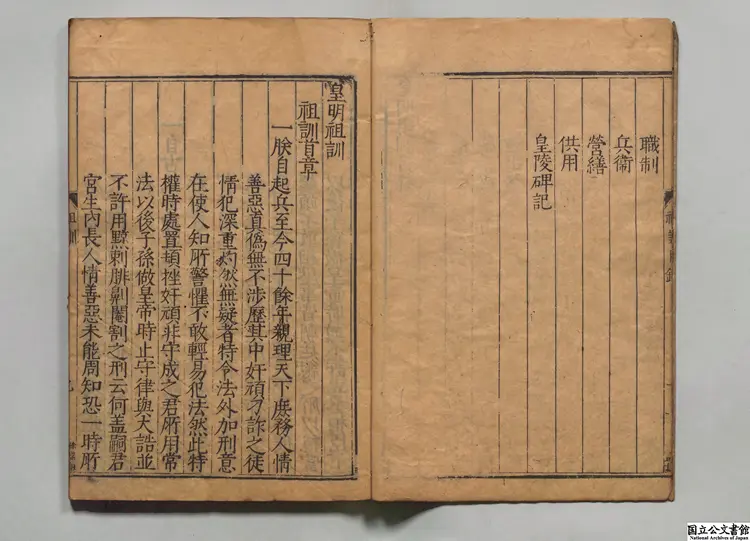 職制
兵衛
營繕
供用
皇陵碑記
皇明祖訓
祖訓首章
一朕自起兵至今四十餘年親理天下庶務人情
善惡真偽無不涉歷其中奸頑刁詐之徒
情犯深重灼然無疑者特令法外加刑意
在使人知所警懼不敢輕易犯法然此特
權時處置頓挫奸頑非守成之君所用常
法以後子孫做皇帝時止守律與大誥並
不許用黥刺腓劓閹割之刑云何盖嗣君
宮生內長人情善惡未能周知恐一時所
祖訓
国立公文書館
National Archives of Japan